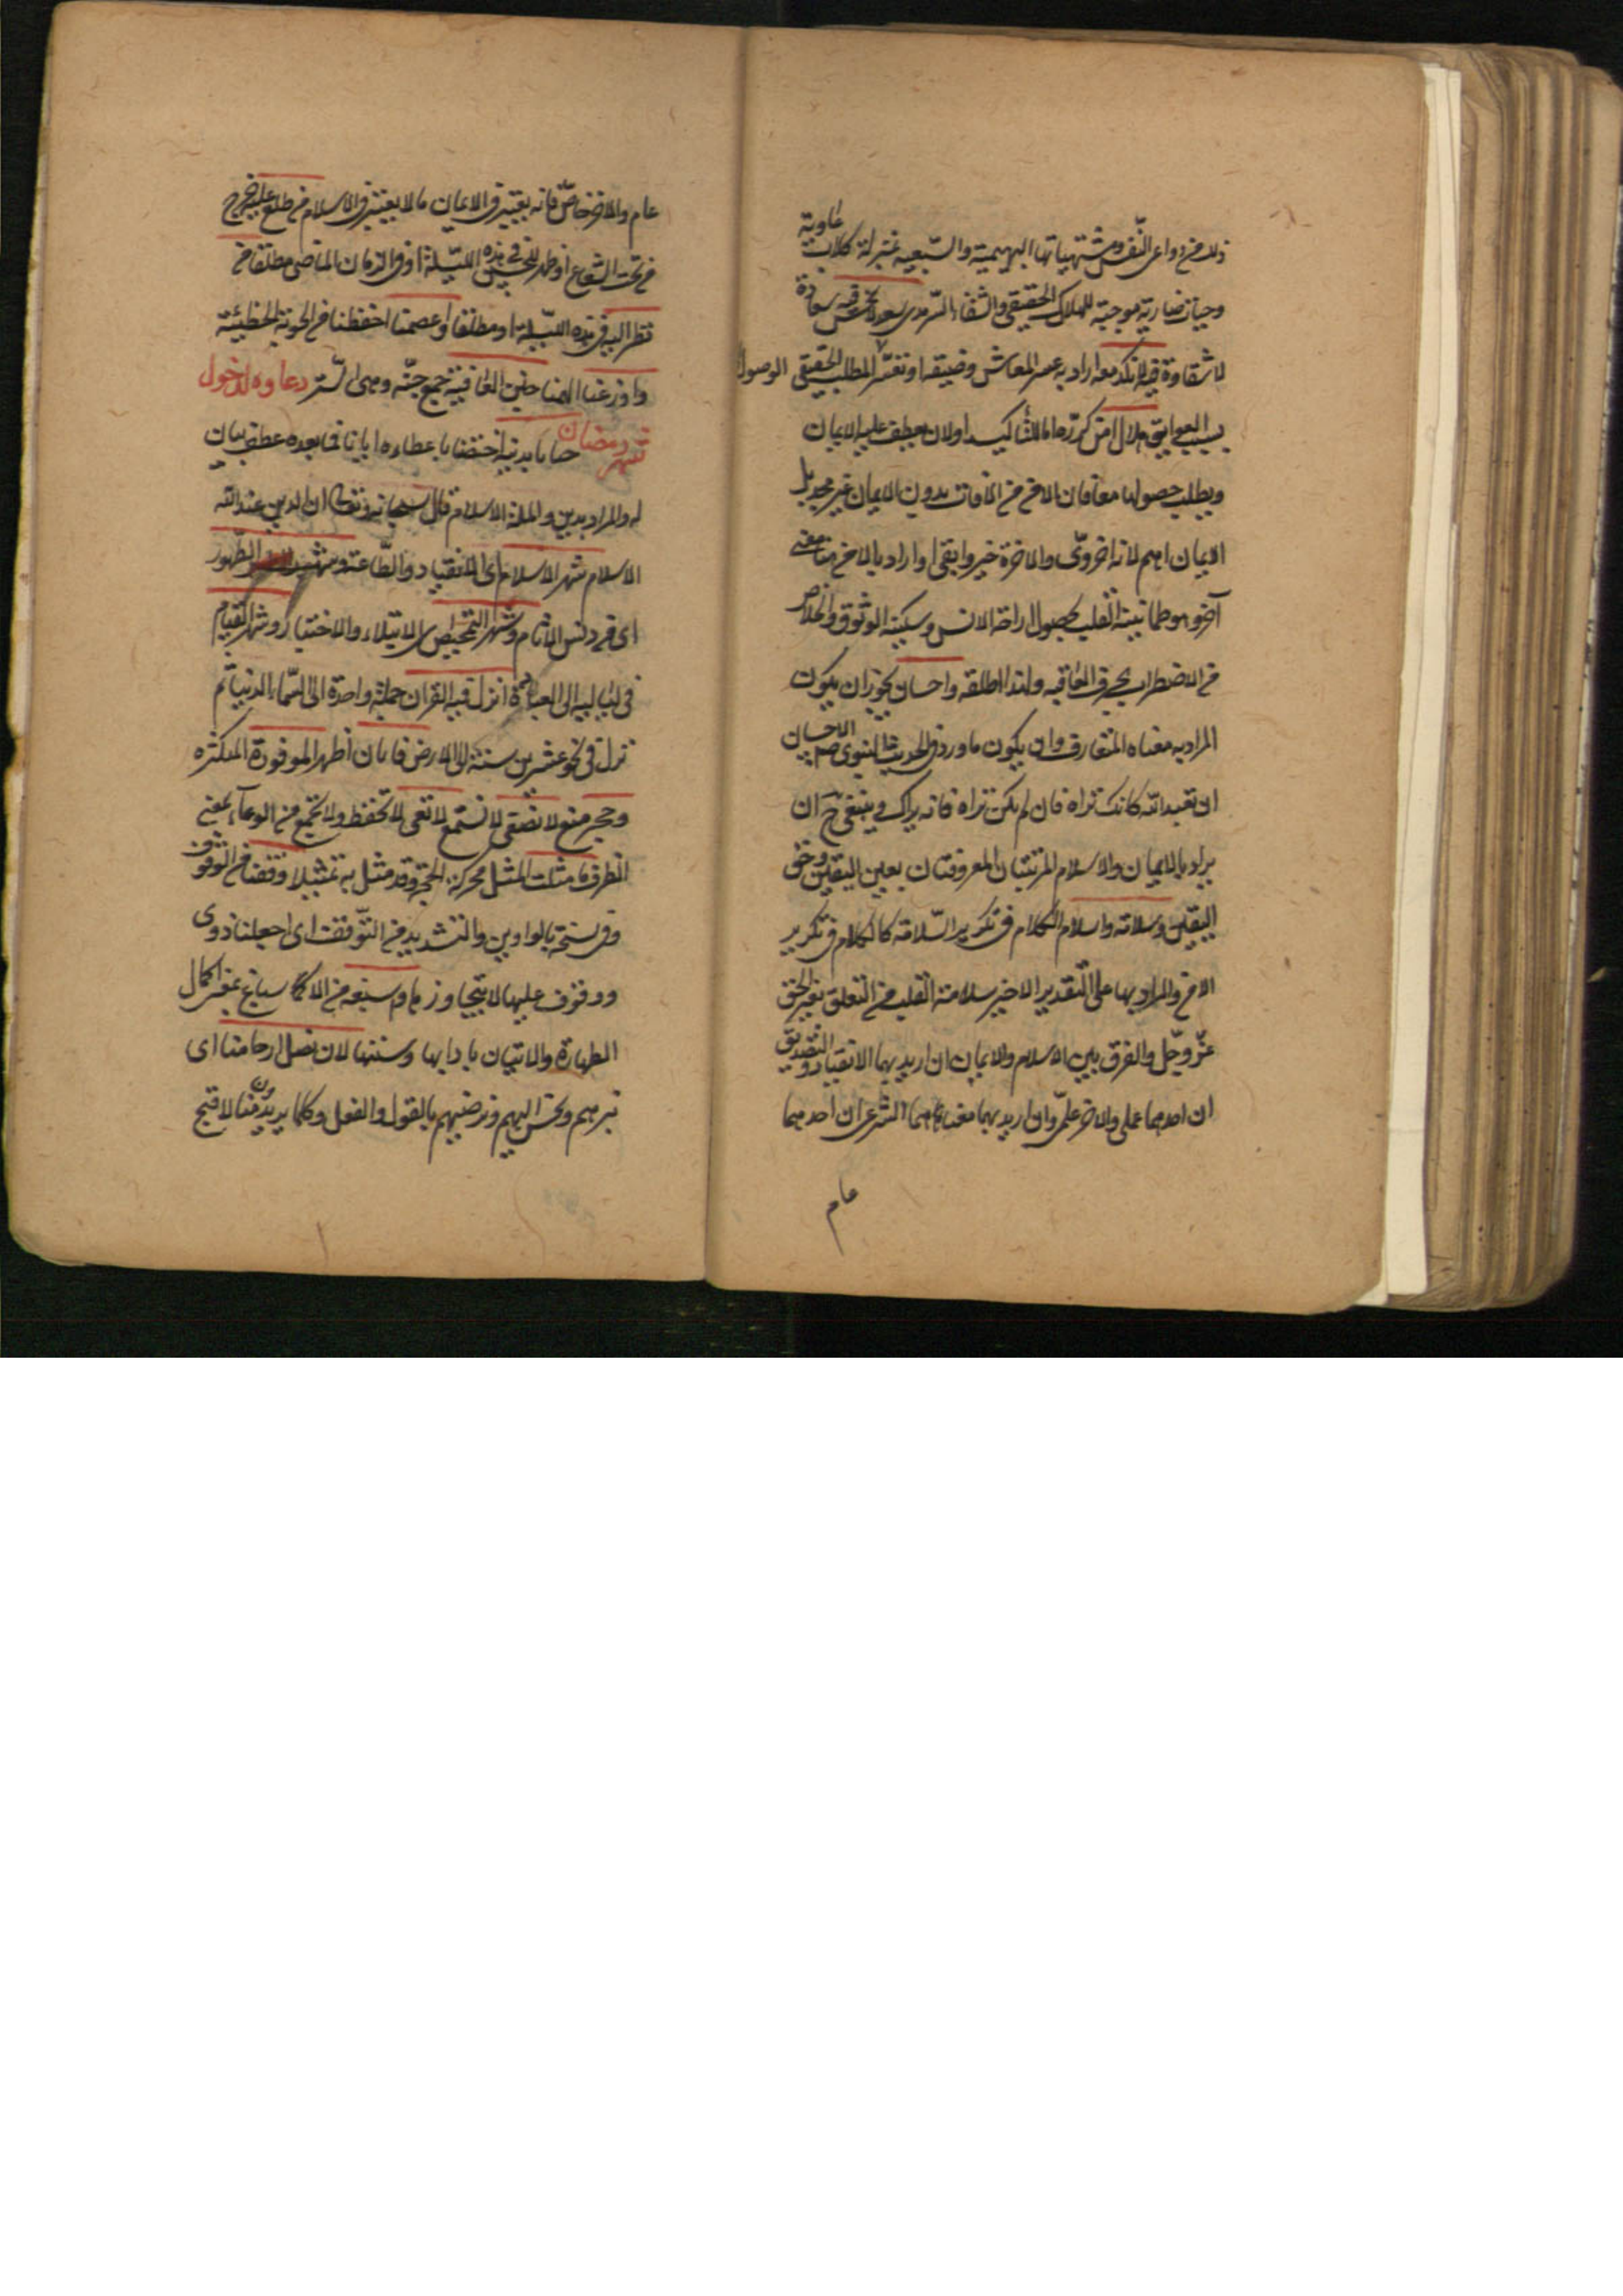 ذلك من دواعى النفس ومشتهياتها البهيمية والسبعية بمنزلة كلاب عاوية
وحيات ضارية موجبة للهلاك الحقيقى والشقاء السرمدى سعد لا نحس فيه سعادة
لا شقاوة فيه لا نكد معه اراد به عسر المعاش وضيقه او تعسر المطلب الحقيقى الوصول
بسبب العوايق هلال امن كرره اما للتأكيد او لان يعطف عليه الايمان
ويطلب حصولهما معا فان الامن من الآفات بدون الايمان غير مجد بل
الايمان اهم لانه اخروى والآخرة خير وابقى او اراد بالامن هنا معنى
آخر هو طمانينة القلب بحصول راحة الانس وسكينة الوثوق والخلاص
من الاضطراب بحرف العاقبه ولذا اطلقه واحسان يجوز ان يكون
المراد به معناه المتعارف وان يكون ما ورد فى الحديث النبوى صم الاحسان
ان تعبد الله كانك تراه فان لم يكن تراه فانه يراك وينبغى ح ان
يراد بالايمان والاسلام المرتبتان المعروفتان بعين اليقين وحق
اليقين وسلامة واسلام الكلام فى تكرير السلامة كالكلام فى تكرير
الامن والمراد بها على التقدير الاخير سلامة القلب من التعلق بغير الحق
عز وجل والفرق بين الاسلام والايمان ان اريد بهما الانقياد والتصديق
ان احدهما عملى والآخر علمى وان اريد بهما معناهما الشرعى ان احدهما
عام
عام والآخر خاص فانه يعتبر فى الايمان ما لا يعتبر فى الاسلام من طلع عليه خرج
من تحت الشعاع او ظهر للحس فى هذه الليلة او فى الزمان الماضى مطلقا من
نظر اليه فى هذه الليلة او مطلقا واعصمنا احفظنا من الحوبة الخطيئة
واوزعنا الهمنا جنن العافية جمع جنة وهى الستر دعاوه لدخول
شهر رمضان حبانا بدينه اختصنا باعطاءه ايانا فما بعده عطف بيان
له والمراد بدين والملة الاسلام قال سبحانه وتعالى ان الدين عند الله
الاسلام شهر الاسلام اى الانقياد والطاعة وشهر الطهور
اى من دنس الآثام وشهر التمحيص اى الابتلاء والاختبار وشهر القيام
فى لياليه الى العبادة انزل فيه القرآن جملة واحدة الى السماء الدنيا ثم
نزل فى نحو عشرين سنة الى الارض فابان اظهر الموفورة المكثره
وحجر منع لا نصغى لا نستمع لا تعى لا تحفظ ولا تجمع من الوعاء بمعنى
الظرف ما مثلت المثل محركة الحجة وقد مثل به تمثيلا وقفنا من الوقوف
وفى نسخة بالواوين والتشديد من التوقفت اى اجعلنا ذوى
ووقوف عليها لا يتجاوز ما واسبغه من الاكمال سباغ بمعنى اكمال
الطهارة والاتيان بادابها وسننها لان نصل ارحامنا اى
نبرهم ونحسن اليهم ونرضيهم بالقول والفعل وكلما يريدون منا لا قبح